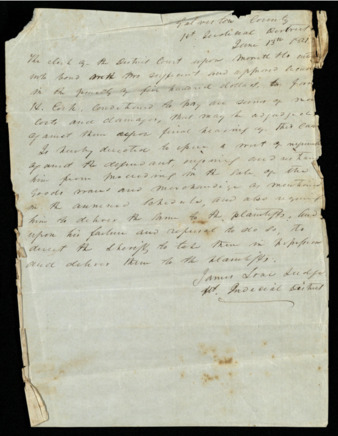 Galveston County
1st Judicial District
June 18th
The clerk of the District Court upon
into bond with two sufficient and approved
in the penalty of five hundred dollars, to
H. Cock, conditioned to pay
costs and damages, that may be adjudged
against them upon final hearing of this
is hereby directed to open a writ of
against the defendant, enjoining and
him from proceeding in the sale of the
Goods wares and merchandize
in the annexed Schedule, and also
him to deliver the same to the plaintiffs, and
upon his failure and refusal to do so, to
direct the Sheriff to take them in
and deliver them to the plaintiffs.
James Love Judge
1st. Judicial District